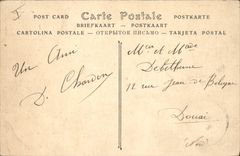 POST CARD Carte Postale POSTKARTE
BRIEFKAART — POSTKAART
CARTOLINA POSTALE — ОТКРЫТОЕ ПИСЬМО — TARJETA POSTAL
Un Ami
D. Chardon
Mr et Mme
Debethune
12 rue Jean de Bologne
Douai
Nord